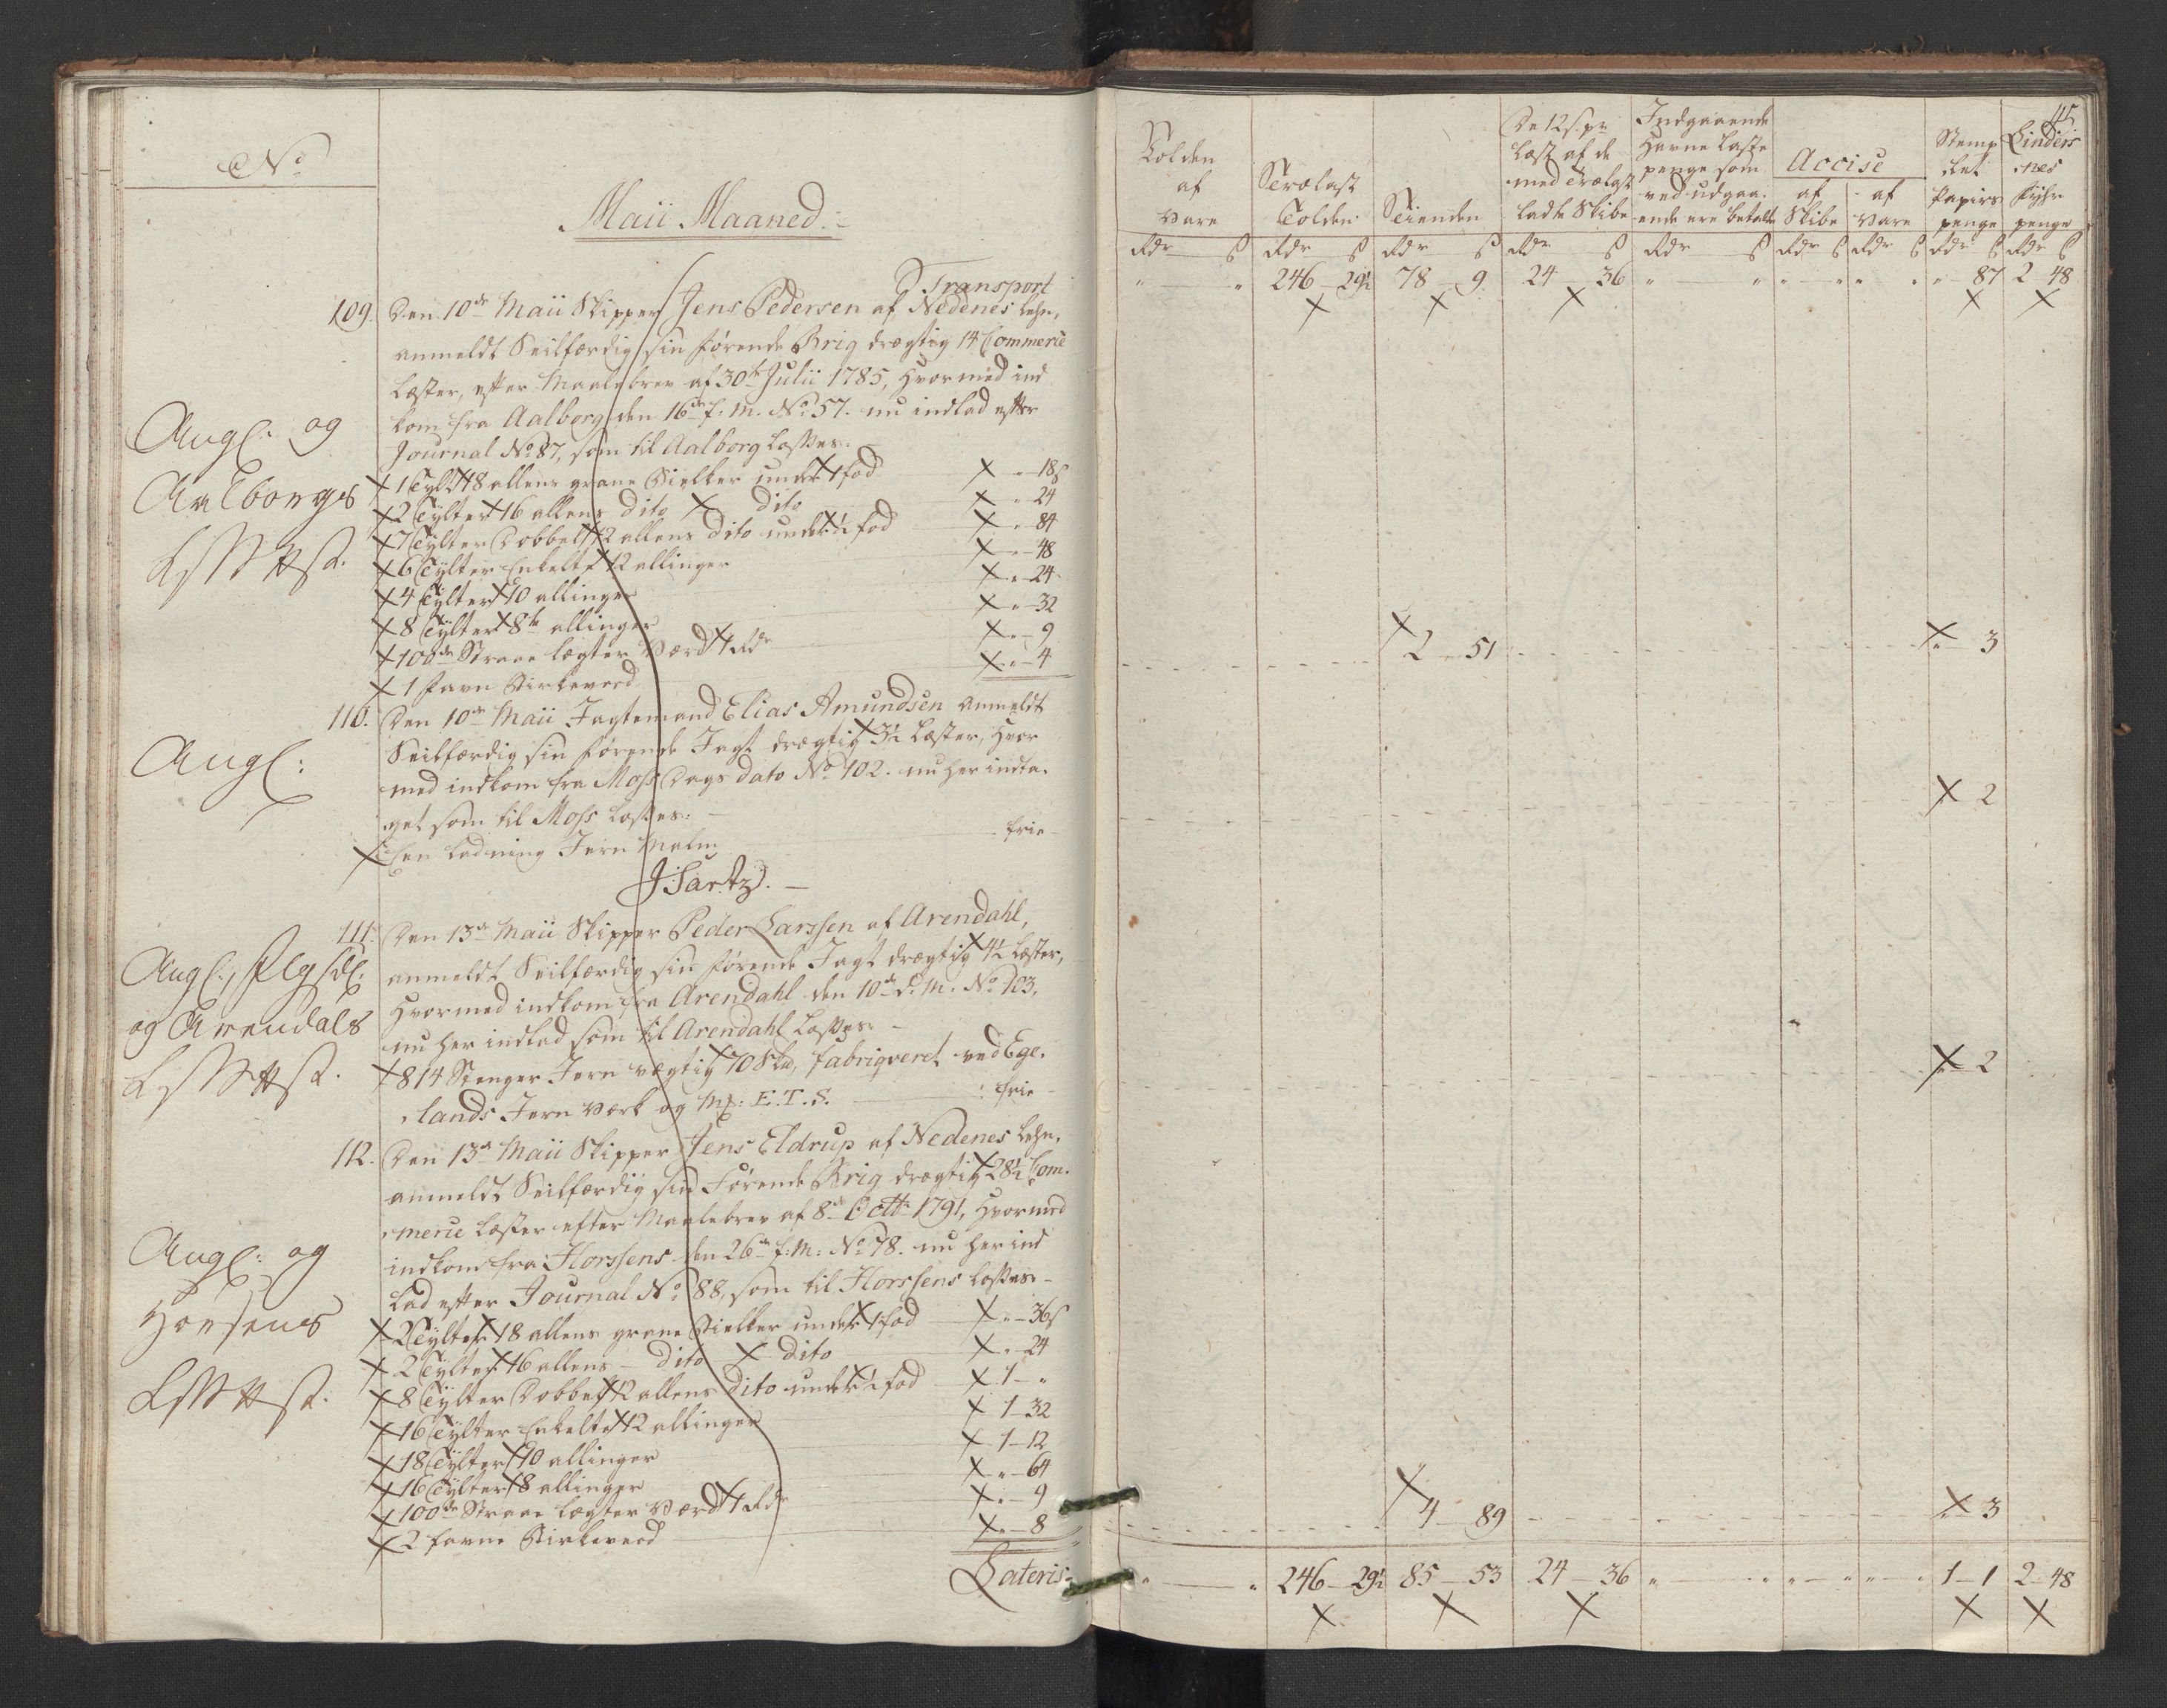 No
Maii Maaned:
Transport
109. Den 10de Maii Skipper Jens Pedersen af Nedenes Lehn,
anmeldt Seilfærdig sin førende Brig drægtig 14 Commerce
Læster, efter Maalebrev af 30te Julii 1785, hvormed ind
kom fra Aalborg den 16de f: M. No 57. nu indlad efter
Journal No 87, som til Aalborg losses:
Angl: og
Aalborgs
1 Tylt 18 allens grane Bielker under 1 fod " - 18 s
2 Tylter 16 allens dito dito " - 24
7 Tylter Dobbelt 12 allens dito under ½ fod " - 84
6 Tylter Enkelte 12 allinger " - 48
4 Tylter 10 allinger " - 24
8 Tylter 8te allinger " - 32
100de Straae lægter Værd 1 Rdr " - 9
1 favn Birkeved " - 4
110. Den 10de Maii Jagtemand Elias Amundsen anmeldt
Seilfærdig sin førende Jagt drægtig 3½ Læster, hvor
med indkom fra Moss Dags dato No 102. nu her indta-
get som til Moss losses:
Angl:
Een Ladning Jern Malm frie
J Sartz.
111. Den 13de Maii Skipper Peder Larssen af Arendahl,
anmeldt Seilfærdig sin førende Jagt drægtig 4½ Læster,
hvormed indkom fra Arendahl den 10de d: M: No 103,
nu her indlad som til Arendahl losses:
Angl:,
og Arendals
814 Stenger Jern vægtig 70 Skd, fabriqveret ved Ege-
lands Jern Værk og M: E.T.S. frie
112. Den 13de Maii Skipper Jens Eldrup af Nedenes Lehn,
anmeldt Seilfærdig sin Førende Brig drægtig 28½ Com-
merce Læster efter Maalebrev af 8de Octbr 1791, hvormed
indkom fra Horssens den 26de f: M: No 78. nu her ind
lad efter Journal No 88, som til Horssens losses:
Angl: og
Horsens
2 Tylter 18 allens grane Bielker under 1 fod " - 36 s
2 Tylter 16 allens - dito dito " - 24
8 Tylter Dobbelt 12 allens dito under ½ fod 1 - "
16 Tylter Enkelte 12 allinger 1 - 32
18 Tylter 10 allinger 1 - 12
16 Tylter 8 allinger " - 64
100de Straae Lægter Værd 1 Rdr " - 9
2 favne Birkeved " - 8
Lateris
45
Tolden af Vare
Trælast Tolden
Tienden
De 12 s. pr Læst af de med Trælast ladte Skibe
Indgaaende Havne Laste penge som ved udgaa- ende ere betalte
Accise
af Skibe
af Vare
Stemp let Papirs penge
Lindes nes Fyhr penge
Rdr s Rdr s Rdr s Rdr s Rdr s Rdr s Rdr s Rdr s Rdr s
" " 246 - 29½ 78 - 9 24 - 36 " " " " " " " - 87 2 - 48
2 - 51 " - 3
2
" - 2
4 - 89 " - 3
" " 246 - 29½ 85 - 53 24 - 36 " " " " " " 1 - 1 2 - 48